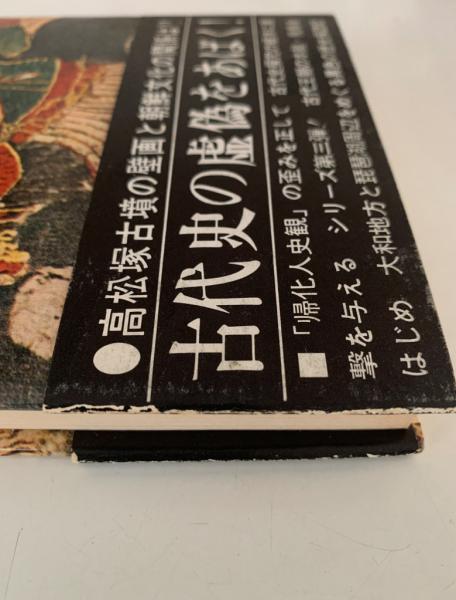 ●高松塚古墳の壁画と朝鮮文化の
古代史の虚偽をあばく!
■「帰化人史観」の歪みを正して 古代
撃を与える シリーズ第三弾! 古代
はじめ 大和地方と琵琶湖周辺をめぐる